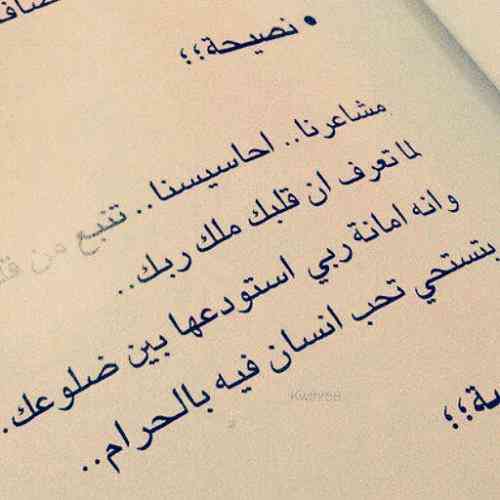 • نصيحة؛؛
مشاعرنا.. احاسيسنا.. تنبع من
لما تعرف ان قلبك ملك ربك..
وانه امانة ربي استودعها بين ضلوعك.
بتستحي تحب انسان فيه بالحرام..
Kwthr68